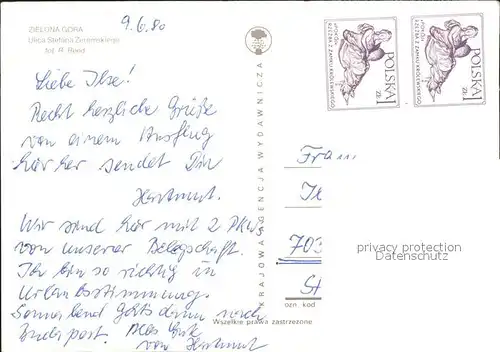 9.6.80
ZIELONA GÓRA
Ulica Stefana Żeromskiego
fot. R. Reed
Liebe Ilse!
Recht herzliche Grüße
von einem Ausflug
hierher sendet Dir
Hartmut.
Wir sind hier mit 2 PKWs
von unserer Belegschaft.
Ich bin so richtig in
Urlaubsstimmung.
Sonnabend geht's dann nach
Budapest. Alles Gute
von Hartmut
KRAJOWA AGENCJA WYDAWNICZA
Wszelkie prawa zastrzeżone
POLSKA 1 ZŁ
RZEŹBA Z ZAMKU KRÓLEWSKIEGO
POLSKA 1 ZŁ
RZEŹBA Z ZAMKU KRÓLEWSKIEGO
Frau
703
ozn. kod
privacy protection
Datenschutz